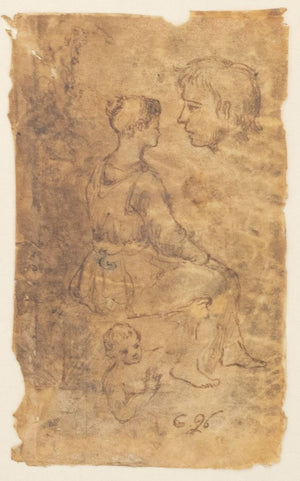 G 96